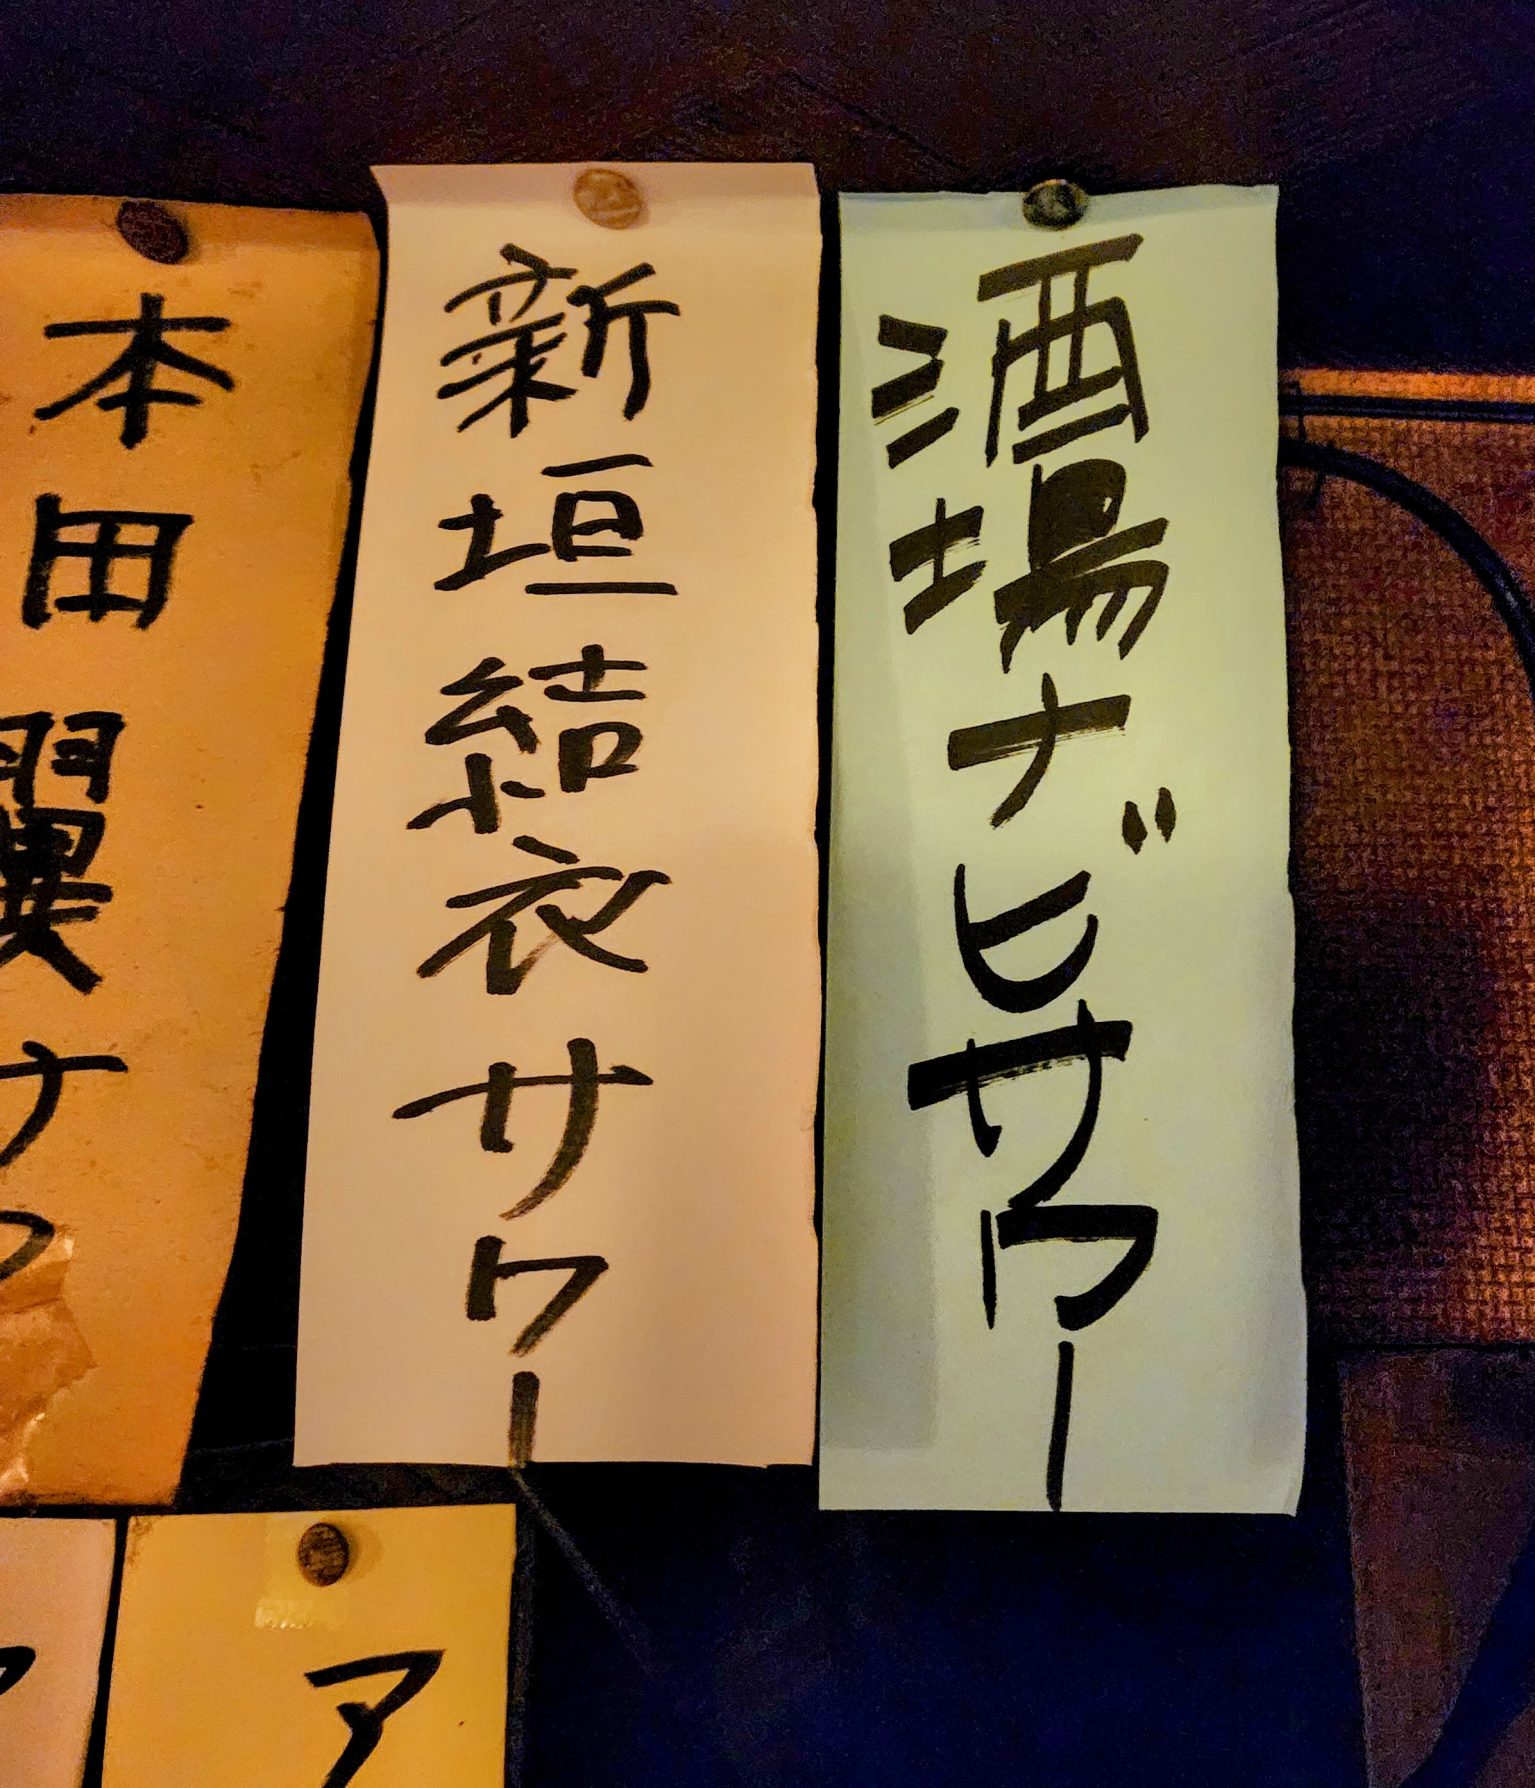 酒場ナビサワー
新垣結衣サワー
本田翼サワ
ア